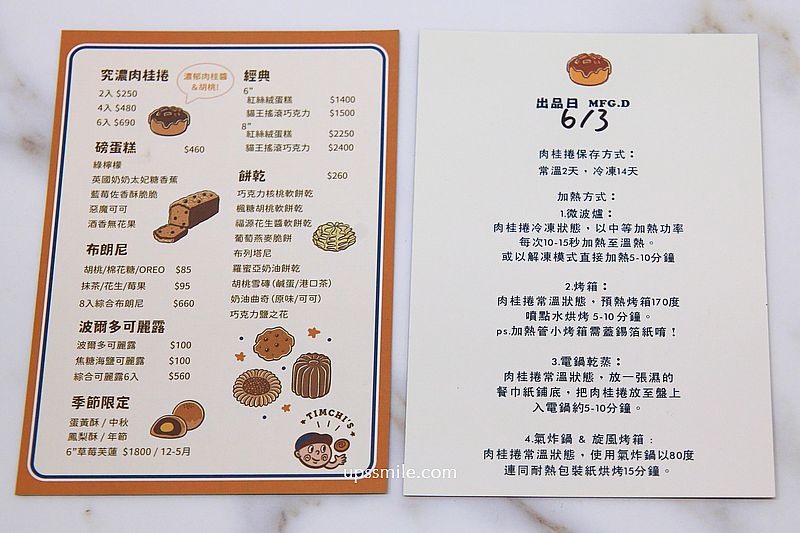 究濃肉桂捲
2入 $250
4入 $480
6入 $690
濃郁肉桂醬
&胡桃!
磅蛋糕 $460
綠檸檬
英國奶奶太妃糖香蕉
藍莓佐香酥脆脆
惡魔可可
酒香無花果
布朗尼
胡桃/棉花糖/OREO $85
抹茶/花生/莓果 $95
8入綜合布朗尼 $660
波爾多可麗露
波爾多可麗露 $100
焦糖海鹽可麗露 $100
綜合可麗露6入 $560
季節限定
蛋黃酥 / 中秋
鳳梨酥 / 年節
6"草莓芙蓮 $1800 / 12-5月
經典
6"
紅絲絨蛋糕 $1400
貓王搖滾巧克力 $1500
8"
紅絲絨蛋糕 $2250
貓王搖滾巧克力 $2400
餅乾 $260
巧克力核桃軟餅乾
楓糖胡桃軟餅乾
福源花生醬軟餅乾
葡萄燕麥脆餅
布列塔尼
羅蜜亞奶油餅乾
胡桃雪磚(鹹蛋/港口茶)
奶油曲奇(原味/可可)
巧克力鹽之花
TIMCHI'S
出品日 MFG.D
6/3
肉桂捲保存方式：
常溫2天，冷凍14天
加熱方式：
1.微波爐：
肉桂捲冷凍狀態，以中等加熱功率
每次10-15秒加熱至溫熱。
或以解凍模式直接加熱5-10分鐘
2.烤箱：
肉桂捲常溫狀態，預熱烤箱170度
噴點水烘烤 5-10 分鐘。
ps.加熱管小烤箱需蓋錫箔紙唷！
3.電鍋乾蒸：
肉桂捲常溫狀態，放一張濕的
餐巾紙鋪底，把肉桂捲放至盤上
入電鍋約5-10分鐘。
4.氣炸鍋 & 旋風烤箱：
肉桂捲常溫狀態，使用氣炸鍋以80度
連同耐熱包裝紙烘烤15分鐘。
upssmile.com